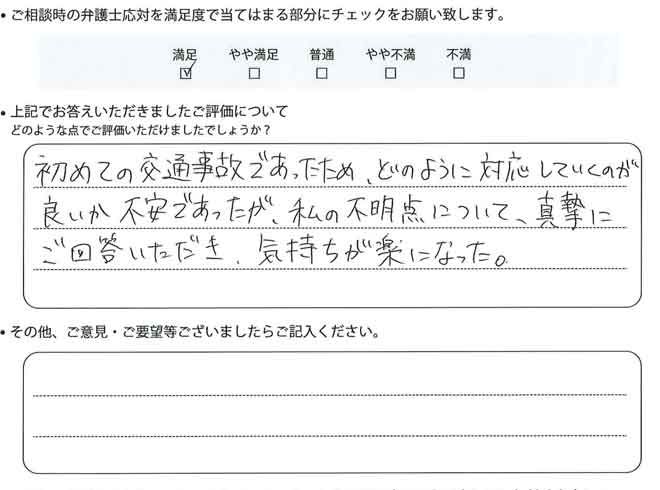 • ご相談時の弁護士応対を満足度で当てはまる部分にチェックをお願い致します。
満足 やや満足 普通 やや不満 不満
☑ ☐ ☐ ☐ ☐
• 上記でお答えいただきましたご評価について
どのような点でご評価いただけましたでしょうか?
初めての交通事故であったため、どのように対応していくのが
良いか不安であったが、私の不明点について、真摯に
ご回答いただき、気持ちが楽になった。
• その他、ご意見・ご要望等ございましたらご記入ください。